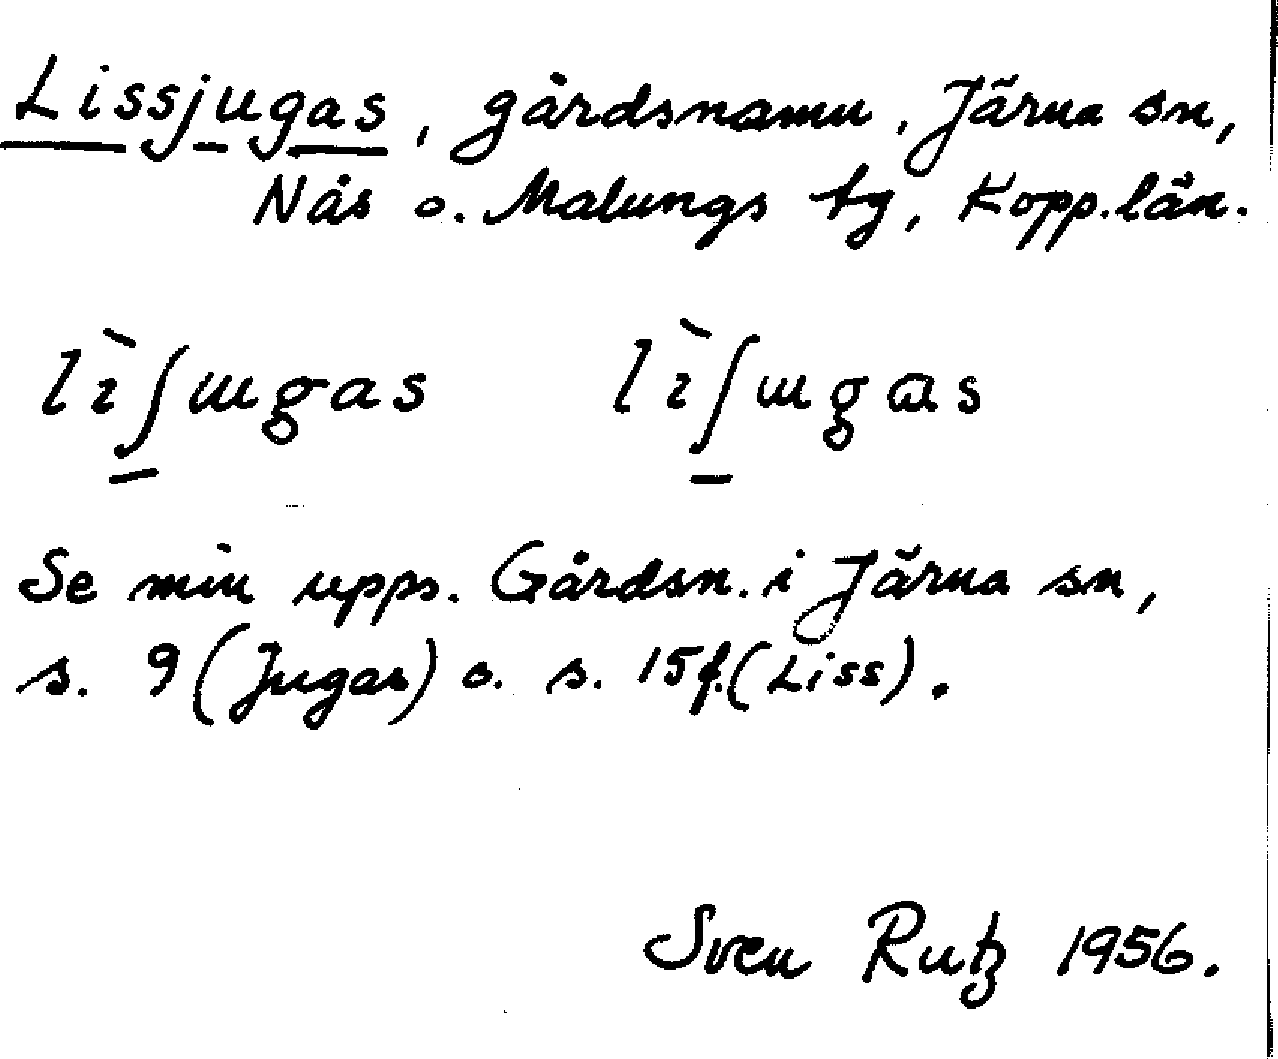 Lissjugas, gårdsnamn, Järna sn,
Nås o. Malungs tg, Kopp.län.
lìʃɯgas lìʃɯgɑs
Se min upps. Gårdsn. i Järna sn,
s. 9 (Jugas) o. s. 15f. (Liss).
Sven Rutz 1956.